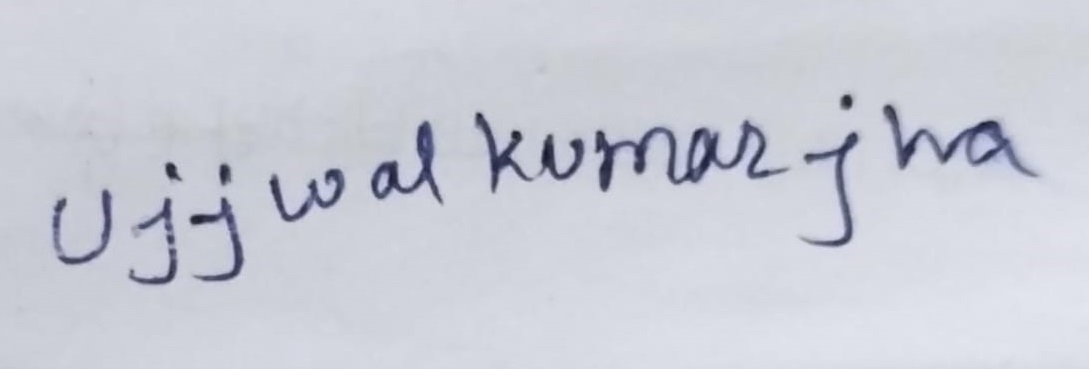 Ujjwal kumar jha